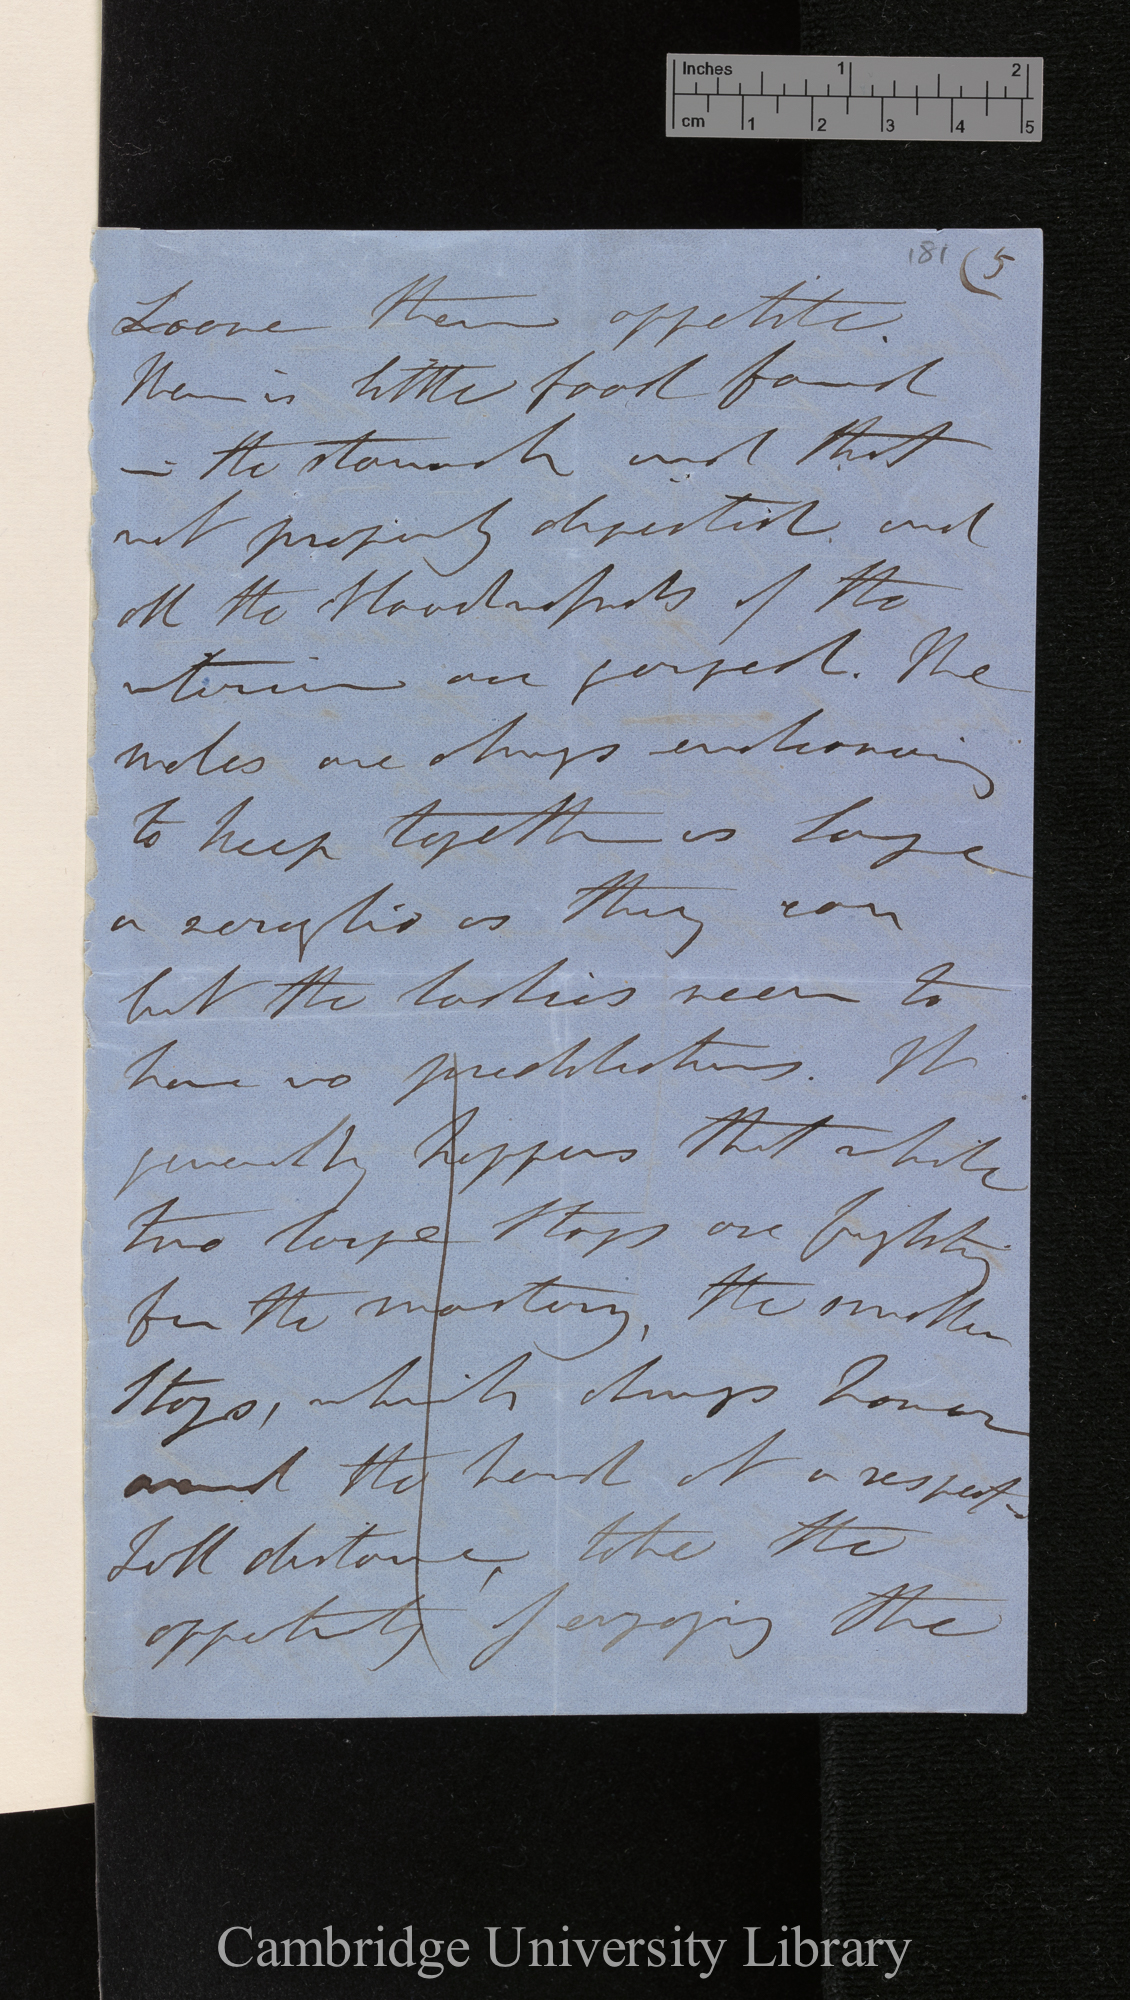 Inches 1 2
cm 1 2 3 4 5
181 (5
Loose their appetite.
There is little food found
in the stomach and that
not properly digested. and
all the blood vessels of the
interior are gorged. The
males are always endeavouring
to keep together as large
a seraglio as they can
but the ladies seem to
have no predilections. It
generally happens that while
two large Stags are fighting
for the mastery, the smaller
Stags, which always hover
around the herd at a respect-
full distance, take the
oppertunity of enjoying the
Cambridge University Library